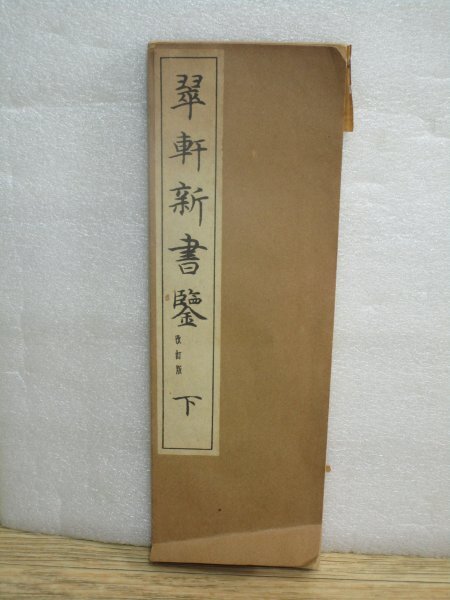 翠軒新書鑒 改訂版 下